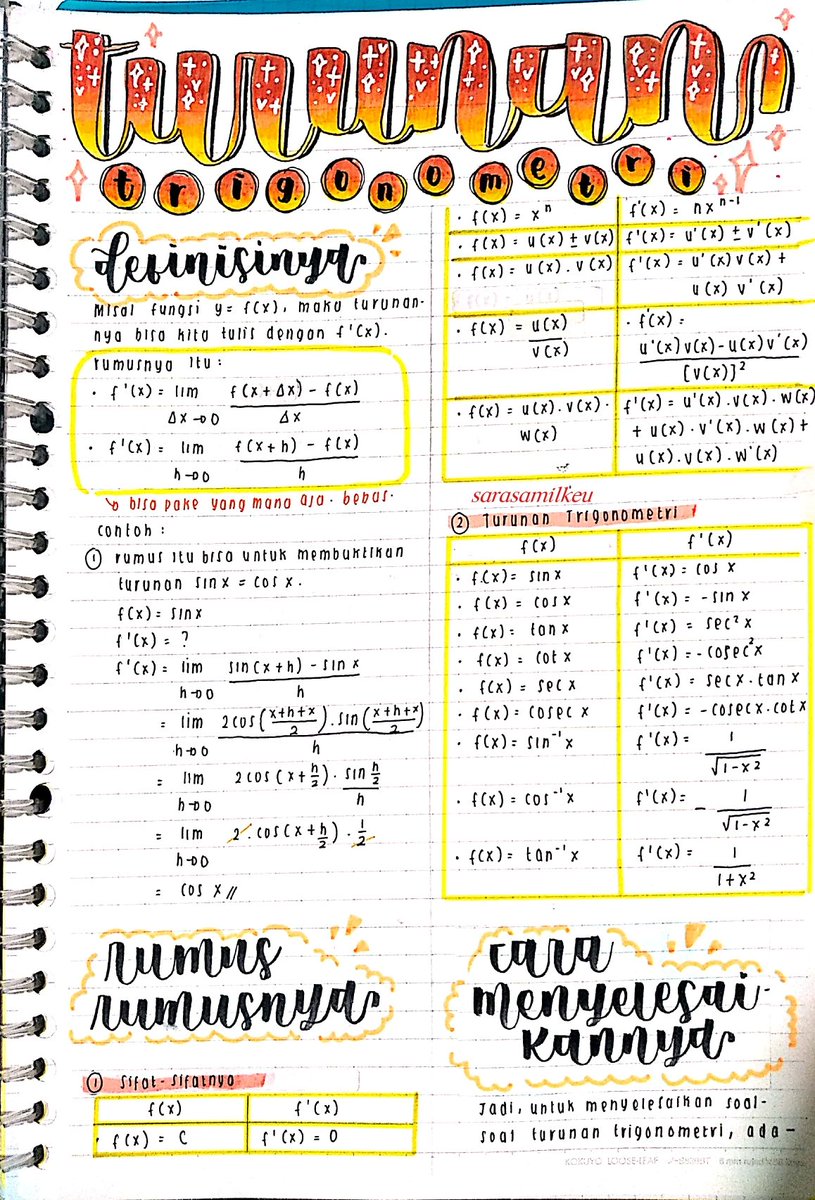 turunan
trigonometri
definisinya
Misal fungsi y = f(x), maka turunan-
nya bisa kita tulis dengan f'(x).
rumusnya itu :
· f'(x) = lim Δx→0 (f(x + Δx) − f(x)) / Δx
· f'(x) = lim h→0 (f(x+h) − f(x)) / h
↳ bisa pake yang mana aja. bebas.
contoh :
① rumus itu bisa untuk membuktikan
turunan sin x = cos x.
f(x) = sin x
f'(x) = ?
f'(x) = lim h→0 (sin(x+h) − sin x) / h
= lim h→0 (2cos((x+h+x)/2) . sin((x+h+x)/2)) / h
= lim h→0 2cos(x+h/2) · (sin h/2) / h
= lim h→0 2 · cos(x+h/2) · 1/2
= cos x //
rumus
rumusnya
① Sifat-sifatnya
f(x) f'(x)
· f(x) = C f'(x) = 0
· f(x) = xⁿ f'(x) = nxⁿ⁻¹
· f(x) = u(x) ± v(x) f'(x) = u'(x) ± v'(x)
· f(x) = u(x) . v(x) f'(x) = u'(x) v(x) +
u(x) v'(x)
· f(x) = u(x) / v(x) · f'(x) =
(u'(x) v(x) − u(x) v'(x)) / [v(x)]²
· f(x) = u(x). v(x). f'(x) = u'(x). v(x). w(x)
w(x) + u(x) · v'(x). w(x) +
u(x). v(x). w'(x)
sarasamilkeu
② Turunan Trigonometri
f(x) f'(x)
· f(x) = sin x f'(x) = cos x
· f(x) = cos x f'(x) = -sin x
· f(x) = tan x f'(x) = sec² x
· f(x) = cot x f'(x) = -cosec² x
· f(x) = sec x f'(x) = sec x . tan x
· f(x) = cosec x f'(x) = -cosec x . cot x
· f(x) = sin⁻¹ x f'(x) = 1 / √(1−x²)
· f(x) = cos⁻¹ x f'(x) = − 1 / √(1−x²)
· f(x) = tan⁻¹ x f'(x) = 1 / (1+x²)
cara
menyelesai-
kannya
Jadi, untuk menyelesaikan soal-
soal turunan trigonometri, ada-
KOKUYO LOOSE-LEAF